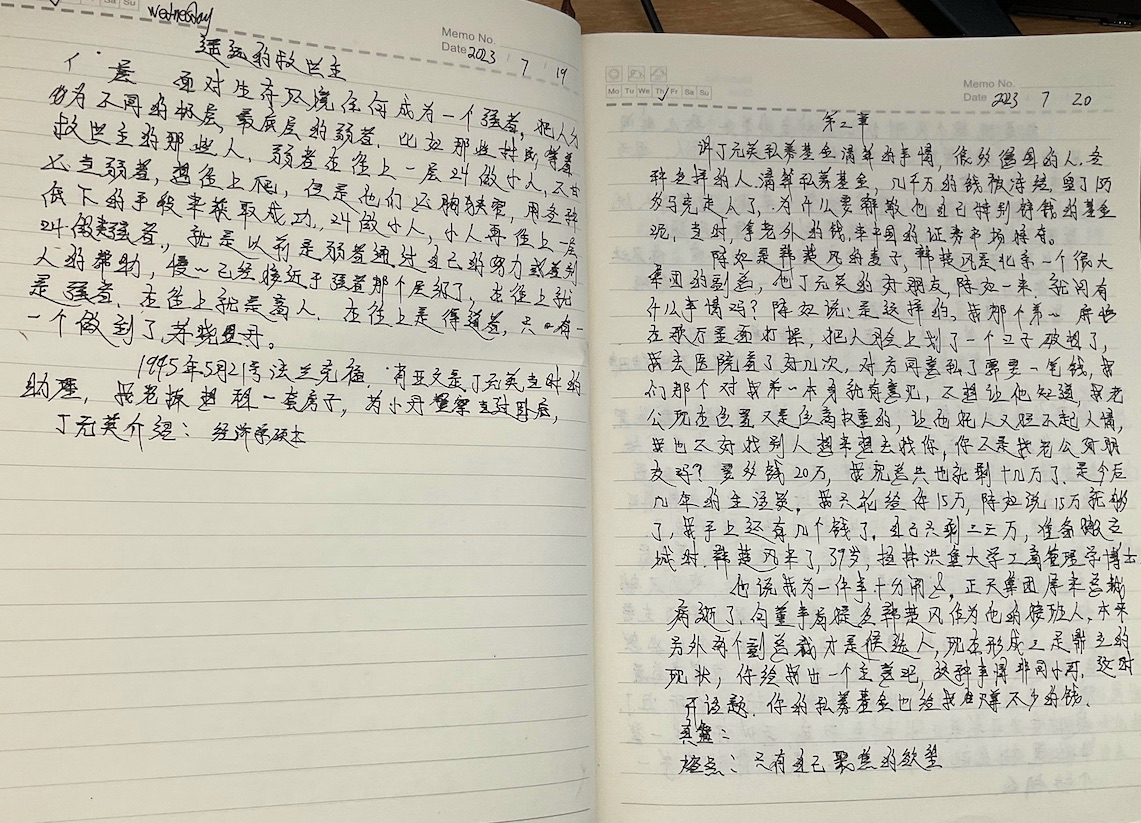 Sa Su
wednesday
Memo No.
Date 2023 7 19
遥远的救世主
面对生存环境如何成为一个强者, 把人分
为不同的极层, 最底层的弱者, 比如那些村民, 等着
救世主的那些人. 弱者在往上一层 24 做小人, 不甘
心当弱者, 想往上爬, 但是他们心胸狭窄, 用各种
低下的手段来获取成功, 24 做小人, 小人再往上一层
24 做强者, 就是以前是弱者通过自己的努力或着别
人的帮助, 慢~已经接近于强者那个层级了, 在往上就
是强者. 在往上就是高人. 在往上是得道者, 只有一
一个做到了, 芮晓丹。
1995年5月21号法兰克福. 肖亚文是丁元英当时的
助理, 我老板想租一套房子, 为小丹
丁元英介绍: 经济学硕士
Mo Tu We Th Fr Sa Su
Memo No.
Date 2023 7 20
第二章
讲丁元英私募基金清算的事情, 很多德国的人. 各
种各样的人. 清算私募基金, 几千万的钱被冻结, 留了
马克走人了, 为什么要解散他自己特别好钱的基金
呢, 当时, 拿老外的钱, 来中国的证券市场
陈如是韩楚风的妻子, 韩楚风是北京一个很大
集团的副总, 他丁元英的好朋友, 陈如一来, 就问有
什么事情吗? 陈如说: 是这样的, 我那个弟~
在歌厅里面打操, 把人脸上划了一个口子破相了,
我去医院看了好几次, 对方同意私了需要一笔钱, 我
们那个对我弟~本身就有意见, 不想让他知道, 我老
公现在位置又是位高权重的, 让他托人又犯不起人情,
我也不好找别人想来想去找你, 你不是我老公好朋
友吗? 要多钱 20万, 我现总共也就剩十几万了, 是今后
几年的生活费. 我只能给你15万, 陈如说15万就够
了, 我手上还有几个钱了. 自己只剩二三万, 准备搬古
城时. 韩楚风来了, 39岁, 洪堡大学工商管理学博士
他说我为一件事十分闹心, 正天集团原来总裁
病逝了, 向董事局提名韩楚风作为他的接班人, 本来
另外两个副总裁才是候选人, 现在形成三足鼎立的
现状, 你给我出一个主意吧, 这种事情非同小可, 这时
开话题. 你的私募基金也给我赚不少的钱.
只有自己聚焦的欲望